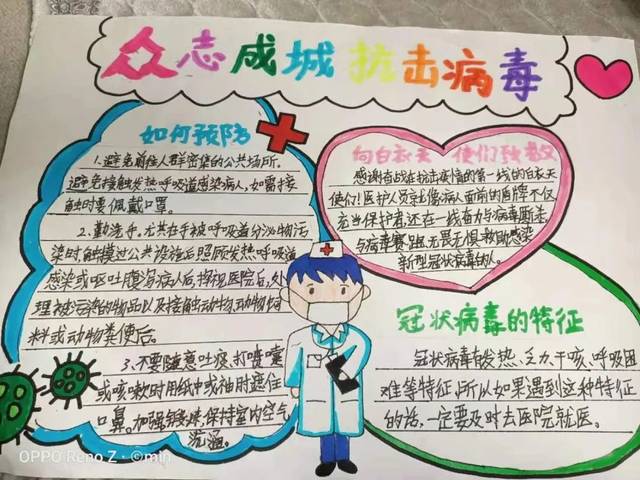 众志成城 抗击病毒
如何预防
1.避免前往人群密集的公共场所.
避免接触发热呼吸道感染病人,如需接
触时要佩戴口罩。
2.勤洗手,尤其在手被呼吸道分泌物污
染时,触摸过公共设施后,照顾发热呼吸道
感染或呕吐腹泻病人后,探视医院后,处
理被污染的物品以及接触动物,动物饲
料或动物粪便后。
3.不要随意吐痰,打喷嚏
或咳嗽时用纸巾或袖肘遮住
口鼻。加强锻炼,保持室内空气
流通。
向白衣天使们致敬
感谢奋战在抗击疫情的第一线的白衣天
使们!医护人员就像病人面前的盾牌不仅
充当保护者,还在一线奋力与病毒
与病毒赛跑,无畏无惧救助感染
新型冠状病毒的人。
冠状病毒的特征
冠状病毒有发热、乏力、干咳、呼吸困
难等特征,所以如果遇到这种特征
的话,一定要及时去医院就医。
OPPO Reno Z · ©min